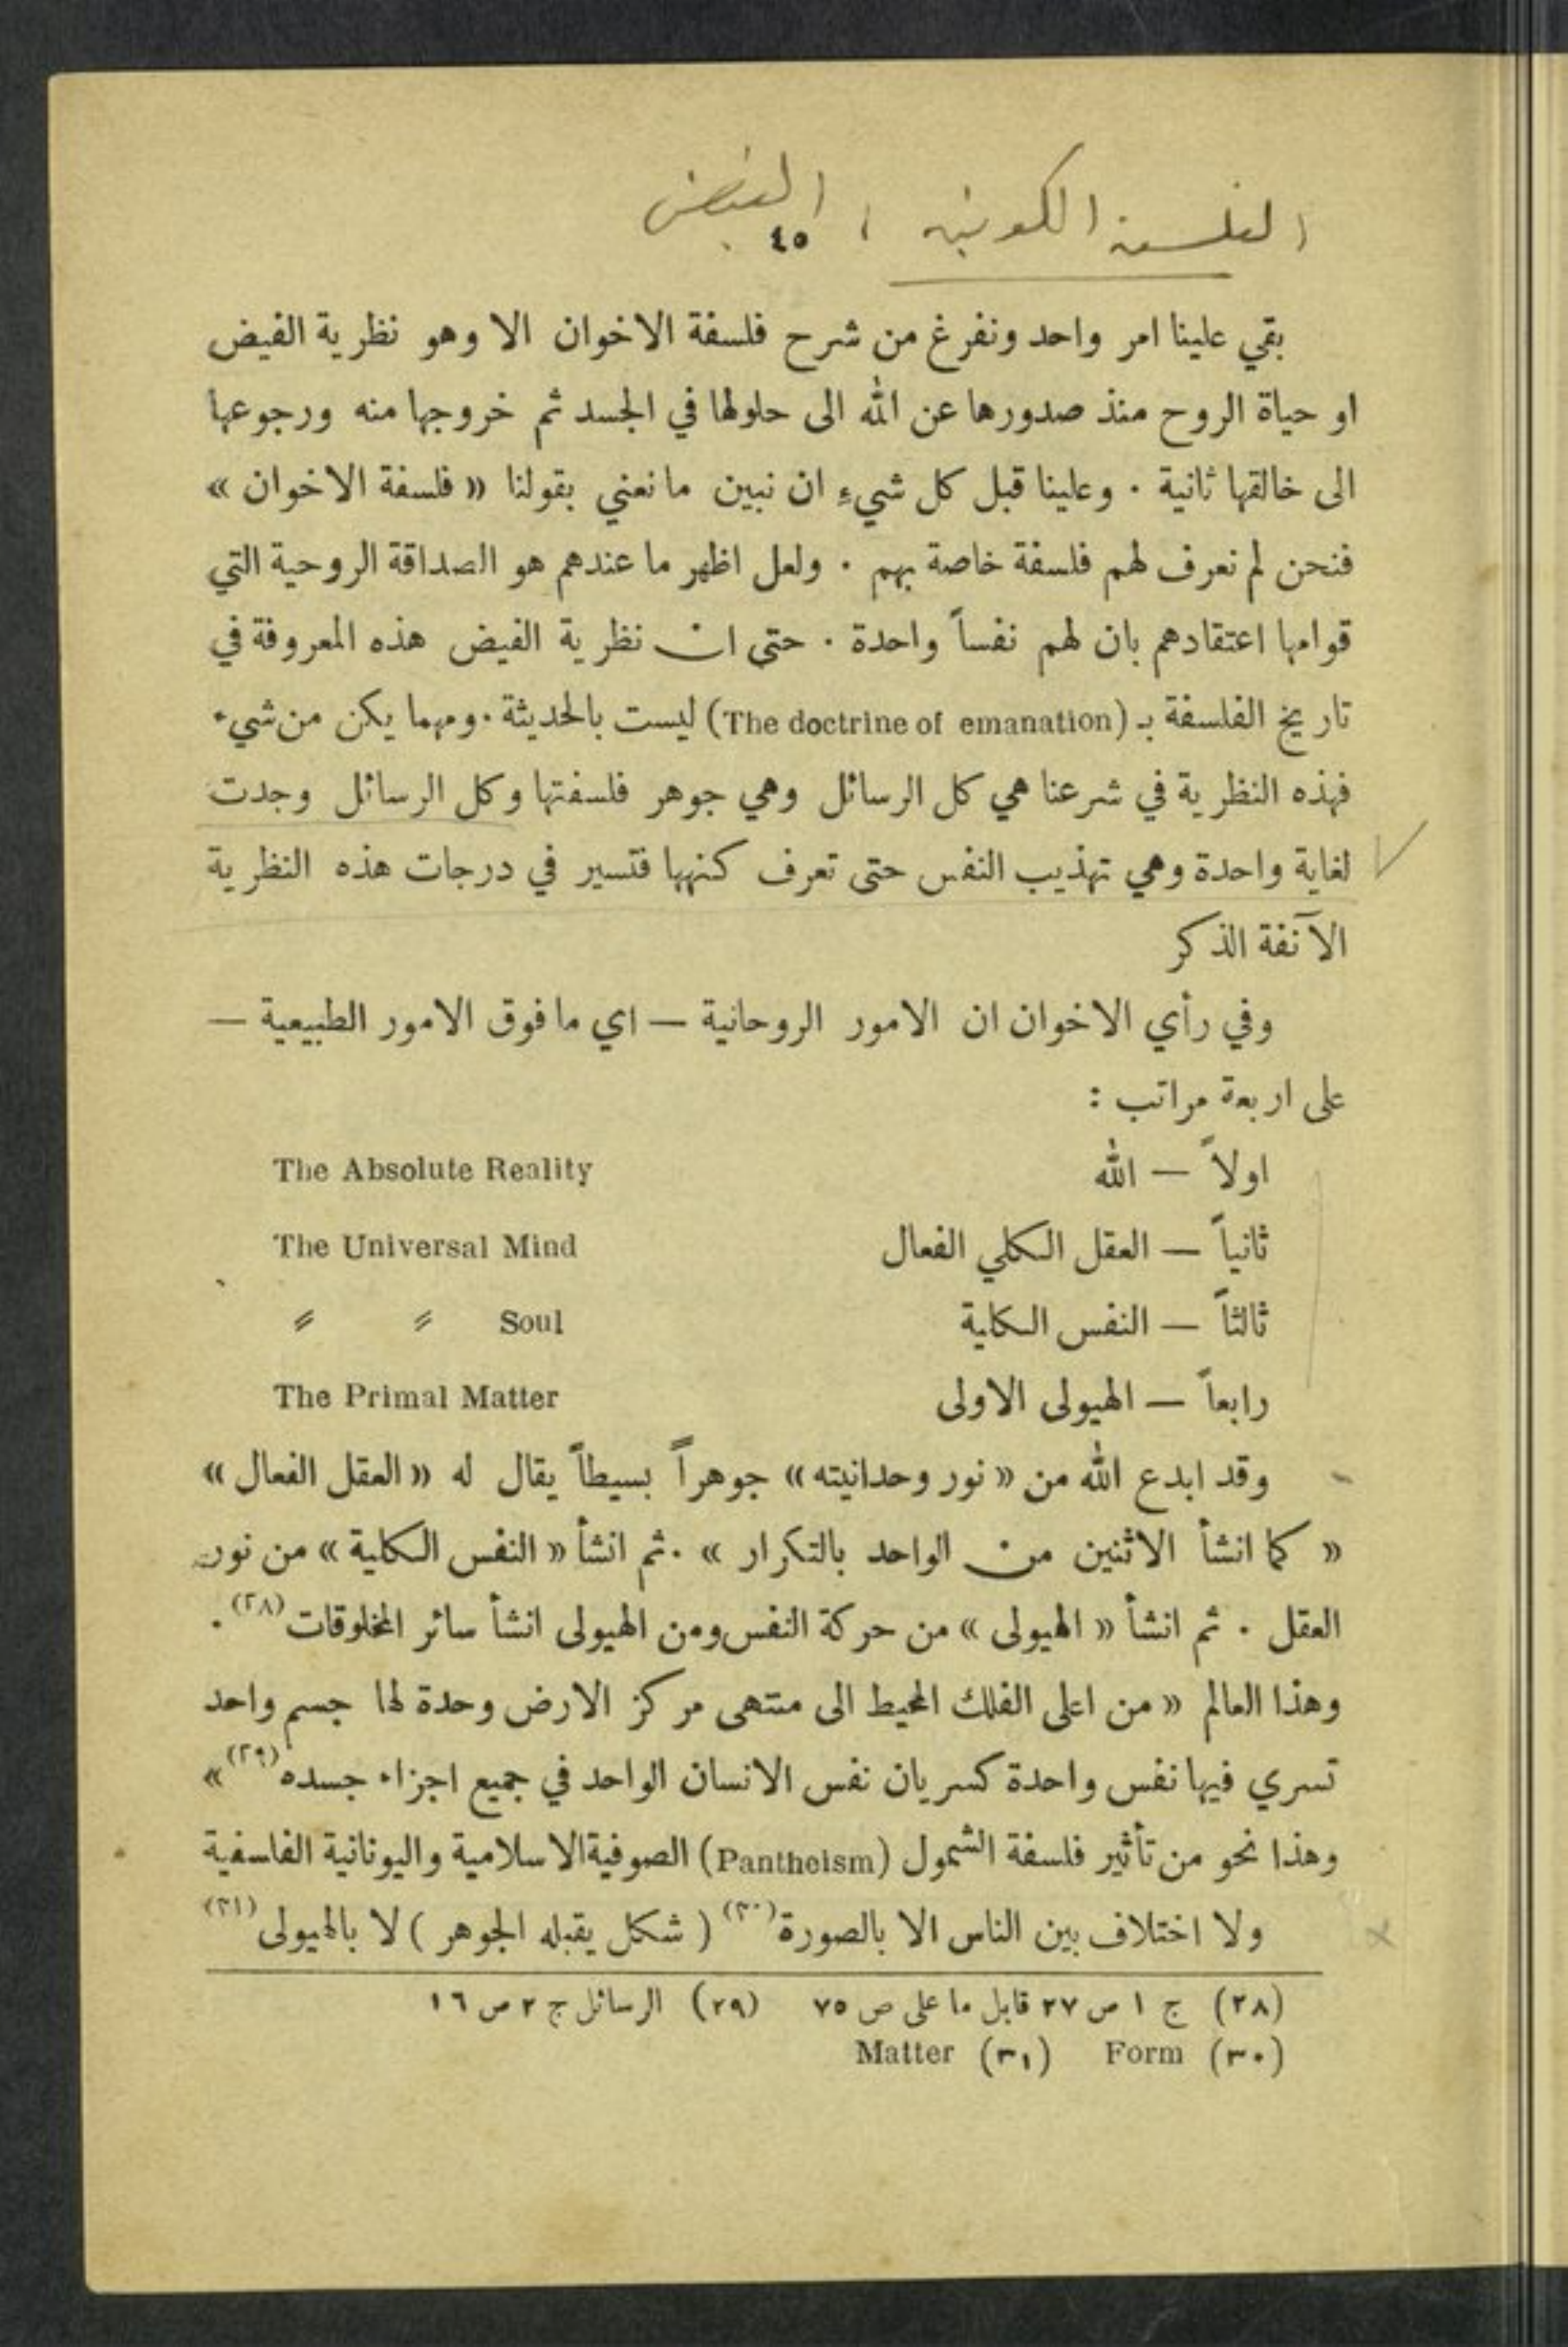 الفلسفة الكونية ، الفيض
٤٥
بقي علينا امر واحد ونفرغ من شرح فلسفة الاخوان الا وهو نظرية الفيض
او حياة الروح منذ صدورها عن الله الى حلولها في الجسد ثم خروجها منه ورجوعها
الى خالقها ثانية . وعلينا قبل كل شيءٍ ان نبين ما نعني بقولنا « فلسفة الاخوان »
فنحن لم نعرف لهم فلسفة خاصة بهم . ولعل اظهر ما عندهم هو الصداقة الروحية التي
قوامها اعتقادهم بان لهم نفساً واحدة . حتى ان نظرية الفيض هذه المعروفة في
تاريخ الفلسفة بـ (The doctrine of emanation) ليست بالحديثة . ومهما يكن من شيء
فهذه النظرية في شرعنا هي كل الرسائل وهي جوهر فلسفتها وكل الرسائل وجدت
لغاية واحدة وهي تهذيب النفس حتى تعرف كنهها فتسير في درجات هذه النظرية
الآنفة الذكر
وفي رأي الاخوان ان الامور الروحانية — اي ما فوق الامور الطبيعية —
على اربعة مراتب :
اولاً — الله The Absolute Reality
ثانياً — العقل الكلي الفعال The Universal Mind
ثالثاً — النفس الكلية 〃 〃 Soul
رابعاً — الهيولى الاولى The Primal Matter
وقد ابدع الله من « نور وحدانيته » جوهراً بسيطاً يقال له « العقل الفعال »
« كما انشأ الاثنين من الواحد بالتكرار » . ثم انشأ « النفس الكلية » من نور
العقل . ثم انشأ « الهيولى » من حركة النفس ومن الهيولى انشأ سائر المخلوقات (٢٨) .
وهذا العالم « من اعلى الفلك المحيط الى منتهى مركز الارض وحدة لها جسم واحد
تسري فيها نفس واحدة كسريان نفس الانسان الواحد في جميع اجزاء جسده (٢٩) »
وهذا نحو من تأثير فلسفة الشمول (Pantheism) الصوفية الاسلامية واليونانية الفلسفية
ولا اختلاف بين الناس الا بالصورة (٣٠) ( شكل يقبله الجوهر ) لا بالهيولى (٣١)
(٢٨) ج ١ ص ٢٧ قابل ما على ص ٧٥ (٢٩) الرسائل ج ٢ ص ١٦
(٣٠) Form (٣١) Matter